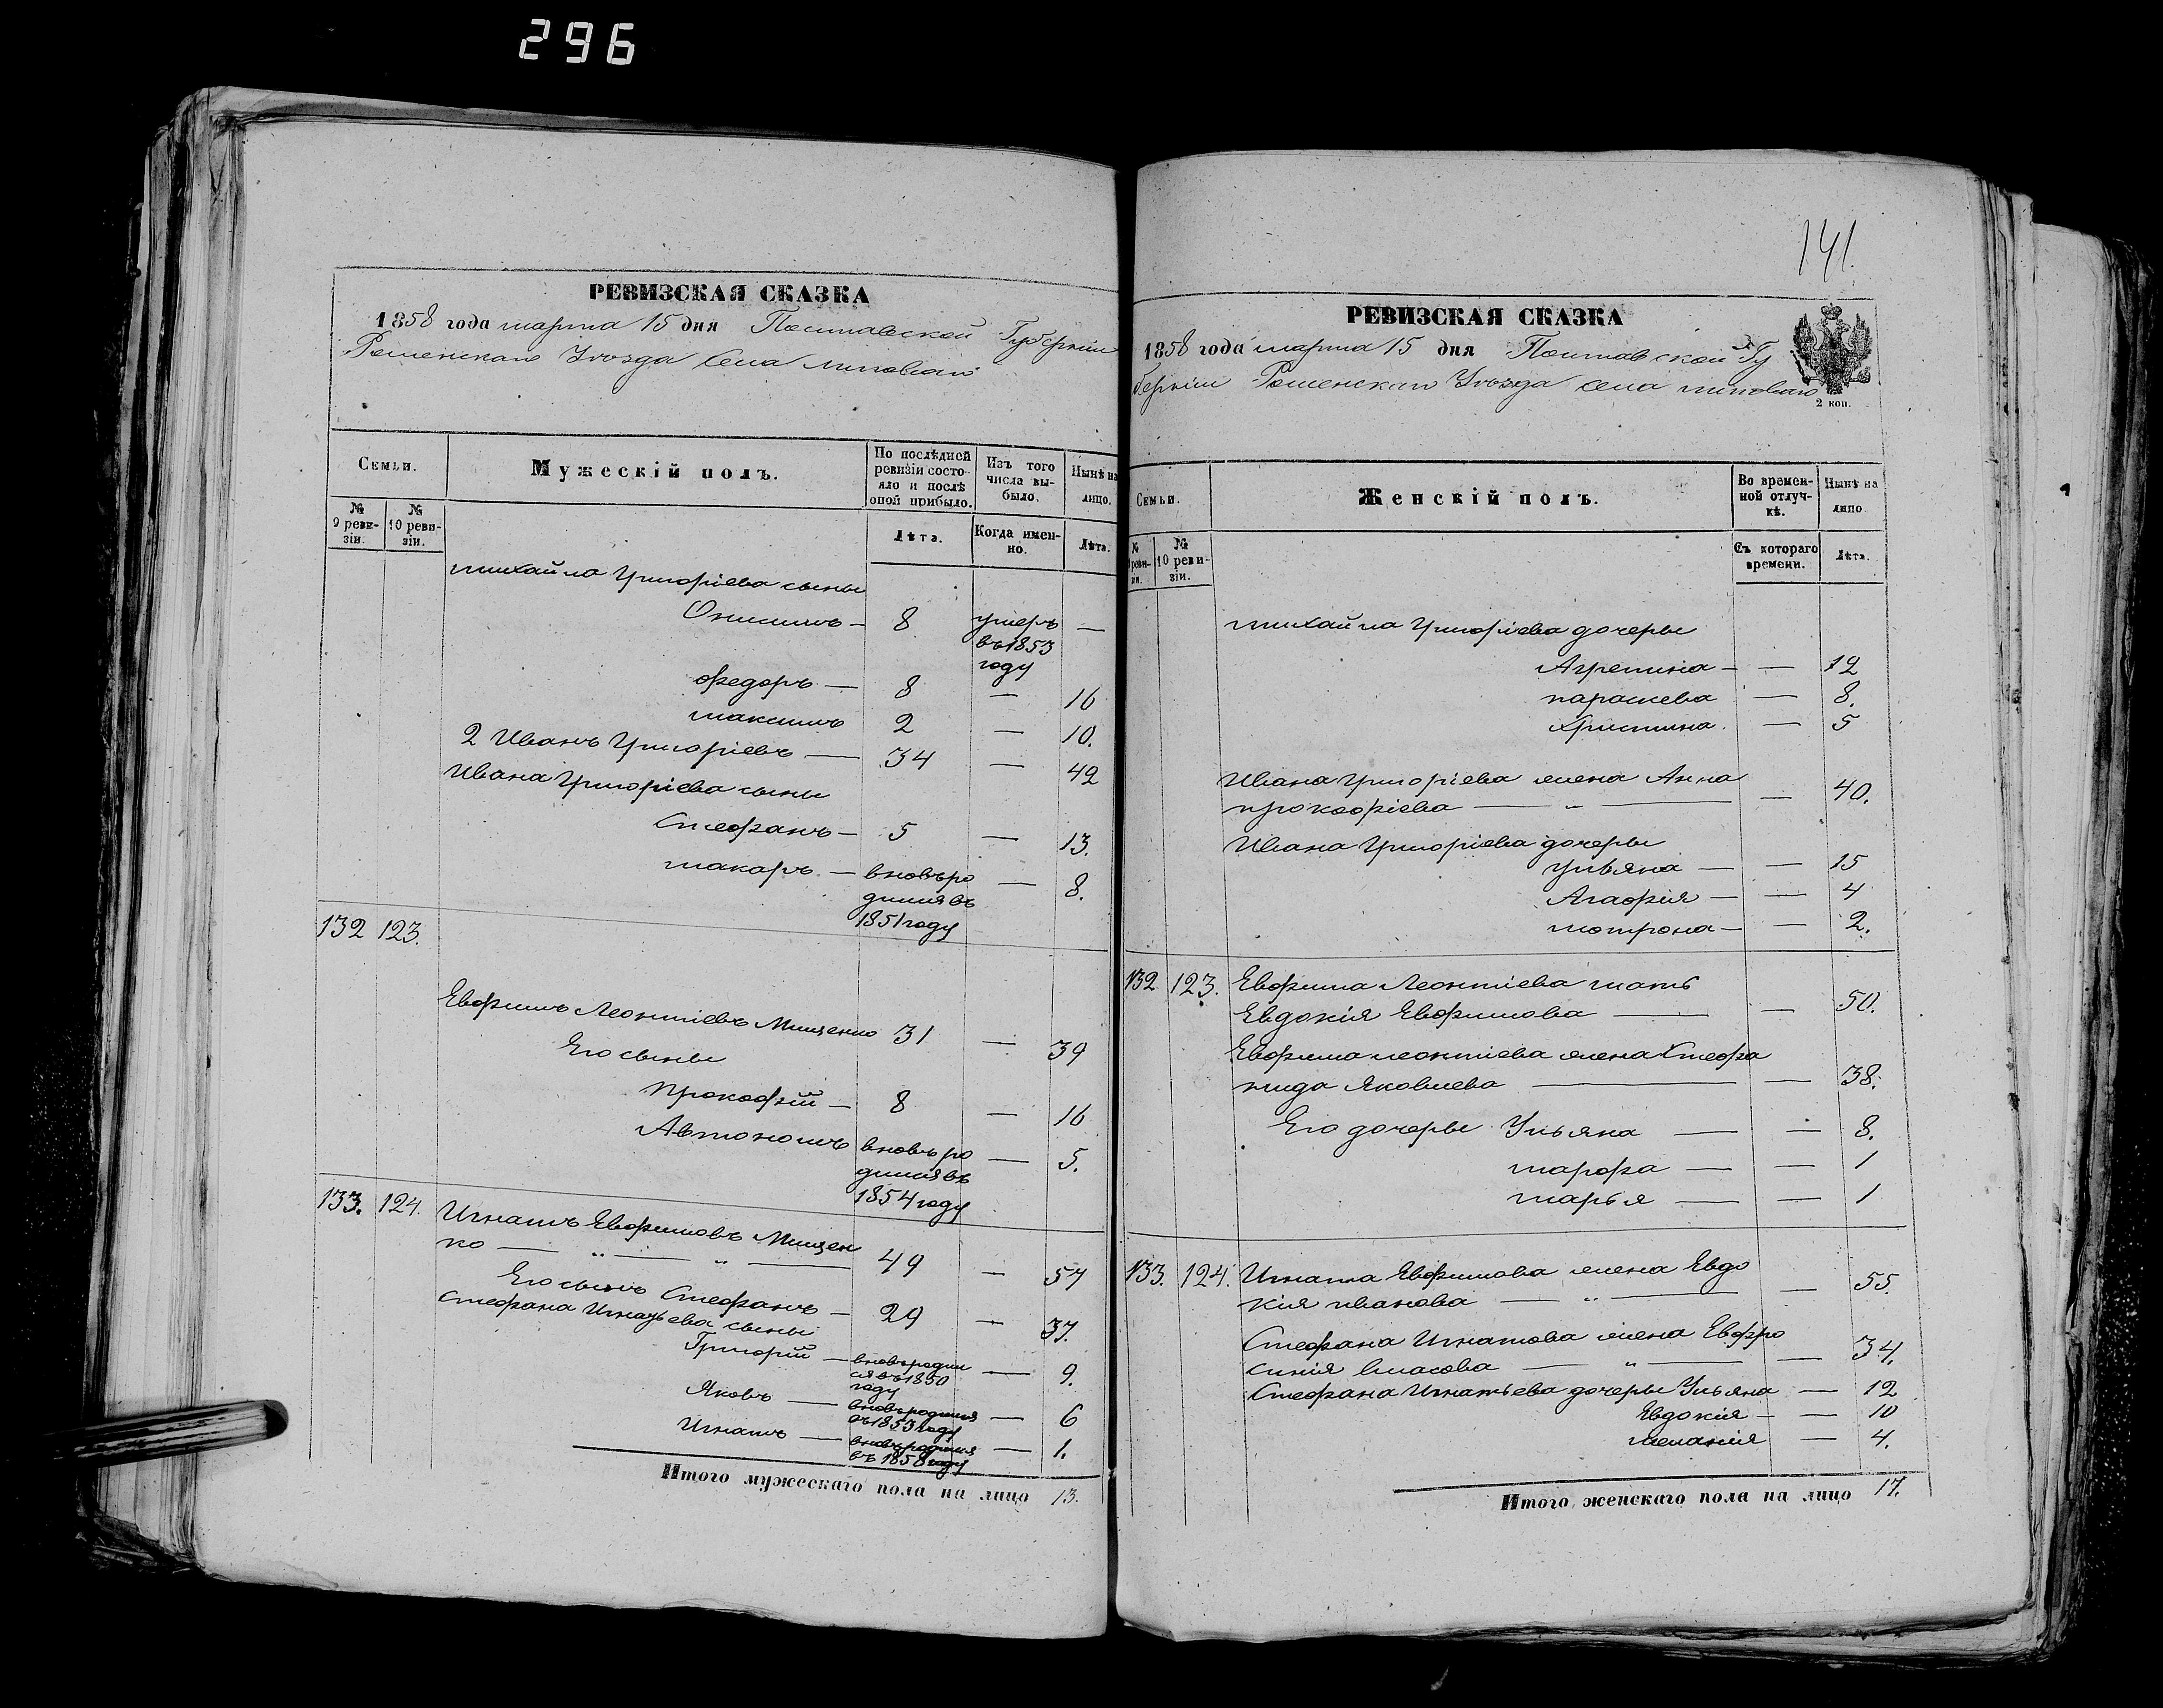 296
РЕВИЗСКАЯ СКАЗКА
1858 года марта 15 дня Полтавской Губерніи
Роменскаго Уѣзда Села Липоваго
Семьи.
Мужескій полъ.
По послѣдней ревизіи состояло и послѣ оной прибыло.
Изъ того числа выбыло.
Нынѣ на лицо.
№ 9 ревизіи.
№ 10 ревизіи.
Лѣта.
Когда именно.
Лѣта.
Михайла Григоріева сыны
Онисимъ — 8 умеръ —
въ 1853
году
Федоръ — 8 — 16
Максимъ 2 — 10.
2 Иванъ Григоріевъ — 34 — 42
Ивана Григоріева сыны
Стефанъ — 5 — 13.
Макаръ — вновь ро — 8.
дился въ
1851 году
132 123.
Евфимъ Леонтіевъ Мищенко 31 — 39
Его сыны
Прокофій — 8 — 16
Автономъ вновь ро — 5.
дился въ
1854 году
133. 124. Игнатъ Евфимовъ Мищен
ко — „ — „ — 49 — 57
Его сынъ Стефанъ — 29 — 37.
Стефана Игнатьева сыны
Григорій — вновь родил — 9.
ся въ 1850
году
Яковъ — вновь родился — 6
въ 1853 году
Игнатъ — вновь родился — 1.
въ 1858 году
Итого мужескаго пола на лицо 13.
141.
РЕВИЗСКАЯ СКАЗКА
1858 года марта 15 дня Полтавской Гу
берніи Роменскаго Уѣзда Села Липоваго
2 коп.
Семьи.
Женскій полъ.
Во временной отлучкѣ.
Нынѣ на лицо
№ 9 ревизіи.
№ 10 ревизіи.
Съ котораго времени.
Лѣта.
Михайла Григоріева дочеры
Агрепина — — 12
Параскева — 8.
Христина. — 5
Ивана Григоріева жена Анна
Прокофіева — „ — — 40.
Ивана Григоріева дочеры
Ульяна — — 15
Агафія — — 4
Мотрона — — 2.
132 123. Евфима Леонтіева мать
Евдокія Евфимова — — 50.
Евфима Леонтіева жена Стефа
нида Яковлева — — 38.
Его дочеры Ульяна — — 8.
Марфа — — 1
Марья — — 1
133. 124. Игната Евфимова жена Евдо
кія Иванова — „ — — 55.
Стефана Игнатова жена Евфро
синія Власова — „ — — 34.
Стефана Игнатьева дочеры Ульяна — 12
Евдокія — — 10
Меланія — 4.
Итого женскаго пола на лицо 17.